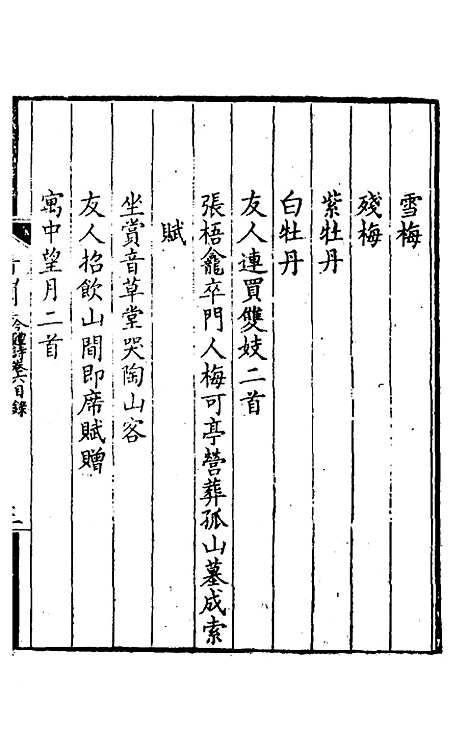 雪梅
殘梅
紫牡丹
白牡丹
友人連買雙妓二首
張梧龕卒門人梅可亭營葬孤山墓成索
賦
坐賞音草堂哭陶山客
友人招飲山間即席賦贈
寓中望月二首
今體詩卷六目錄